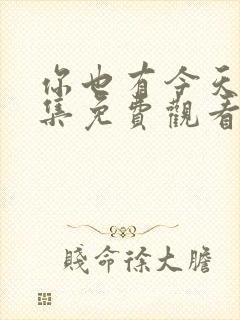 你也有今天
集免費觀看
賤命徐大膽